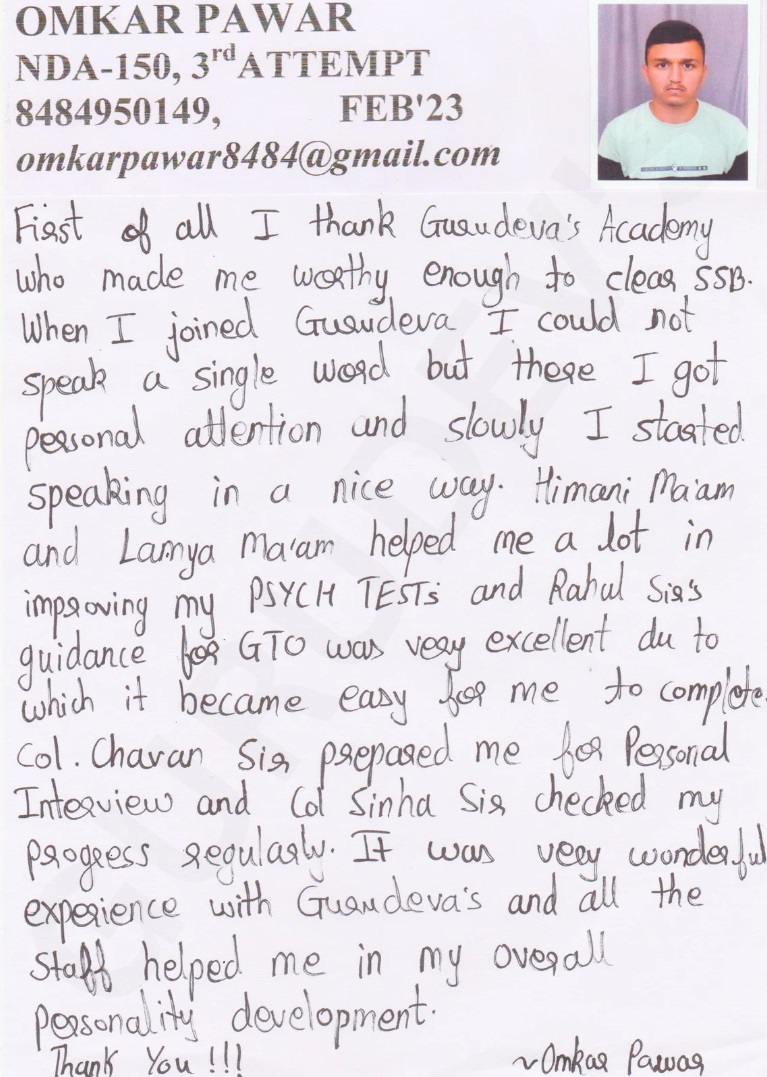 OMKAR PAWAR
NDA-150, 3rd ATTEMPT
8484950149, FEB'23
omkarpawar8484@gmail.com
First of all I thank Gurudeva's Academy
who made me worthy enough to clear SSB.
When I joined Gurudeva I could not
speak a single word but there I got
personal attention and slowly I started
speaking in a nice way. Himani Ma'am
and Lamya Ma'am helped me a lot in
improving my PSYCH TESTs and Rahul Sir's
guidance for GTO was very excellent du to
which it became easy for me to complete.
Col. Chavan Sir prepared me for Personal
Interview and Col Sinha Sir checked my
progress regularly. It was very wonderful
experience with Gurudeva's and all the
staff helped me in my overall
personality development.
Thank You !!! ~Omkar Pawar